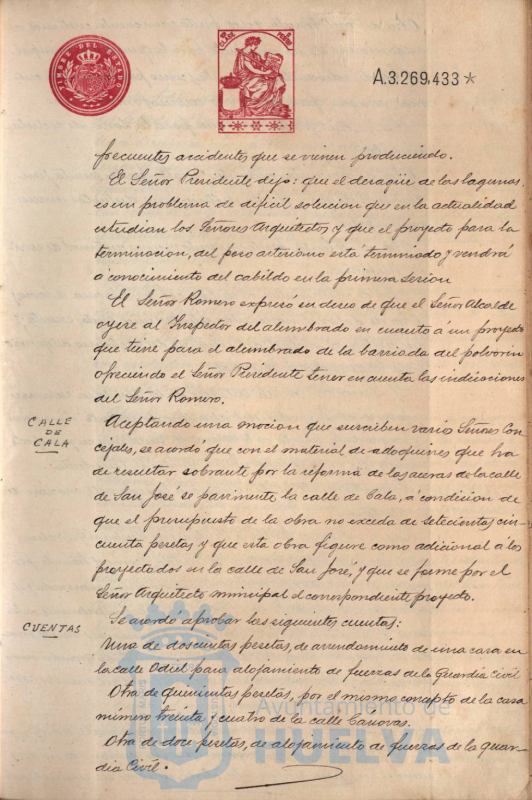 TIMBRE DEL ESTADO
A.3.269.433*
frecuentes accidentes que se vienen produciendo.
El Señor Presidente dijo: que el deragüe de las lagunas
es un problema de dificil solucion que en la actualidad
estudian los Señores Arquitectos y que el proyecto para la
terminacion, del pozo artesiano está terminado y vendrá
á conocimiento del cabildo en la primera sesion
El Señor Romero expresó su deseo de que el Señor Alcalde
oyese al Inspector del alumbrado en cuanto a un proyecto
que tiene para el alumbrado de la barriada del polvorin
ofreciendo el Señor Presidente tener en cuenta las indicaciones
del Señor Romero.
CALLE
DE
CALA
Aceptando una mocion que suscriben varios Señores Con-
cejales, se acordó que con el material de adoquines que ha
de resultar sobrante por la reforma de las aceras de la calle
de San José se pavimente la calle de Cala, á condicion de
que el presupuesto de la obra no exceda de setecientas cin-
cuenta pesetas y que esta obra figure como adicional á los
proyectados en la calle de San José, y que se forme por el
Señor Arquitecto municipal el correspondiente proyecto.
CUENTAS
Se acordó aprobar las siguientes cuentas:
Una de doscientas pesetas, de arrendamiento de una casa en
la calle Odiel para alojamiento de fuerzas de la Guardia Civil
Otra de quinientas pesetas, por el mismo concepto de la casa
número treinta y cuatro de la calle Canovas.
Otra de doce pesetas, de alojamiento de fuerzas de la guar-
dia Civil.
Ayuntamiento de
HUELVA